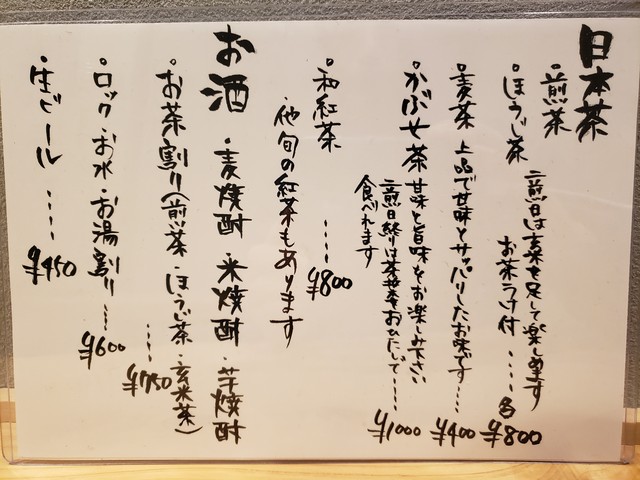 日本茶
・煎茶
・ほうじ茶
二煎目は玄米を足して楽しめます
お茶うけ付 ････ 各¥800
・麦茶 上品で甘味とサッパリしたお味です ････ ¥400
・かぶせ茶 甘味と旨味をお楽しみ下さい
二煎目終りは茶葉をおひたしで ････ ¥1000
食べれます
・和紅茶 ････ ¥800
・他旬の紅茶もあります
お酒 ・麦焼酎 ・米焼酎 ・芋焼酎
・お茶割り(煎茶・ほうじ茶・玄米茶)
････ ¥750
・ロック・お水・お湯割り ････ ¥600
・生ビール ････ ¥450